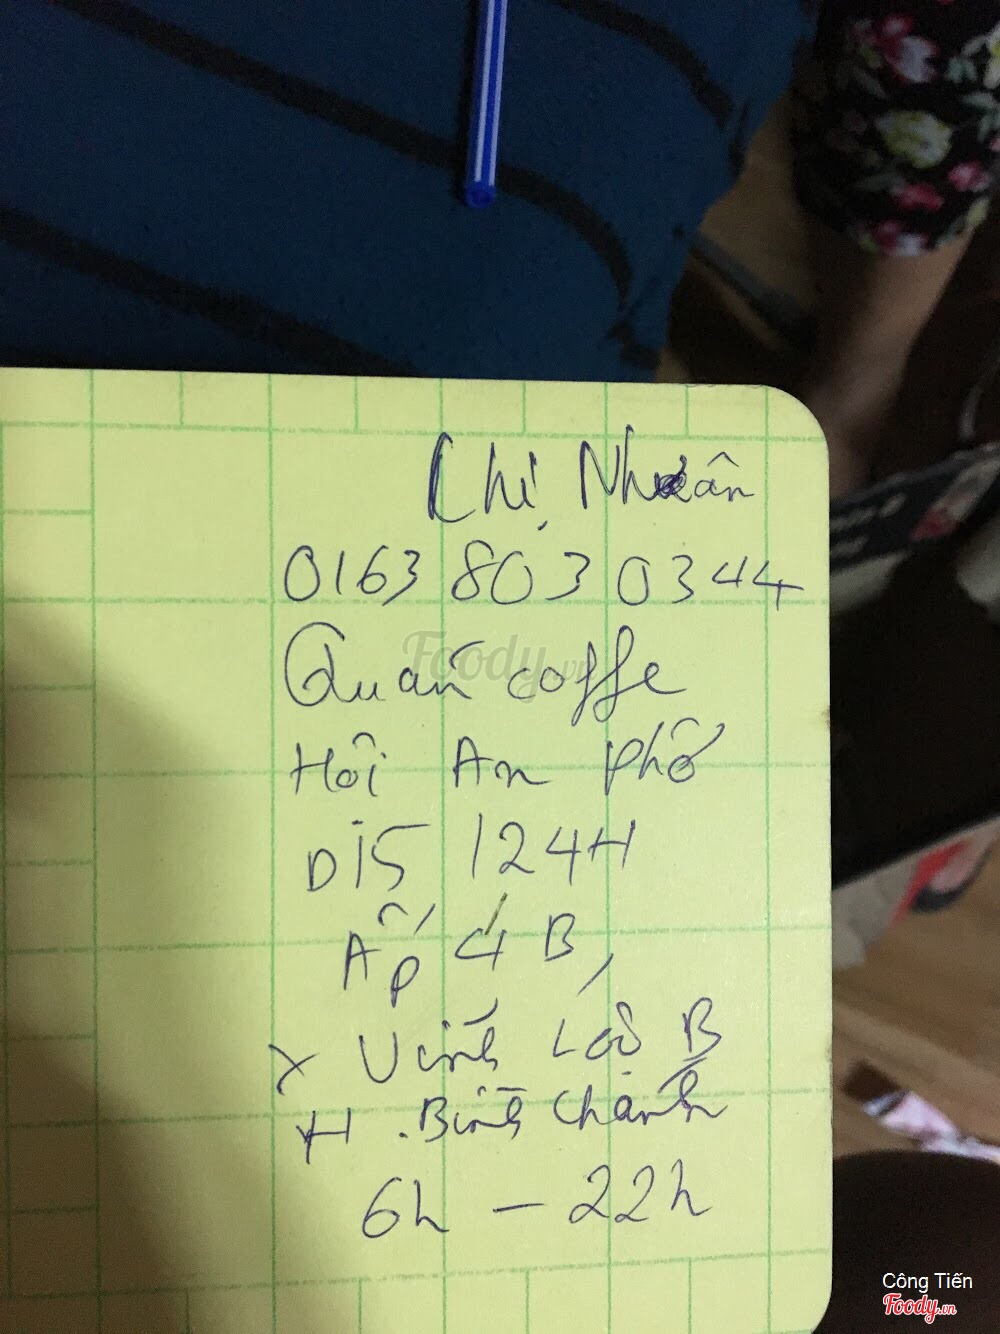 Chị Nhân
0163 803 0344
Quán coffe
Hội An Phố
D15 124H
Ấp 4 B,
X Vĩnh Lộc B
H. Bình Chánh
6h - 22h
Foody.vn
Công Tiến
Foody.vn